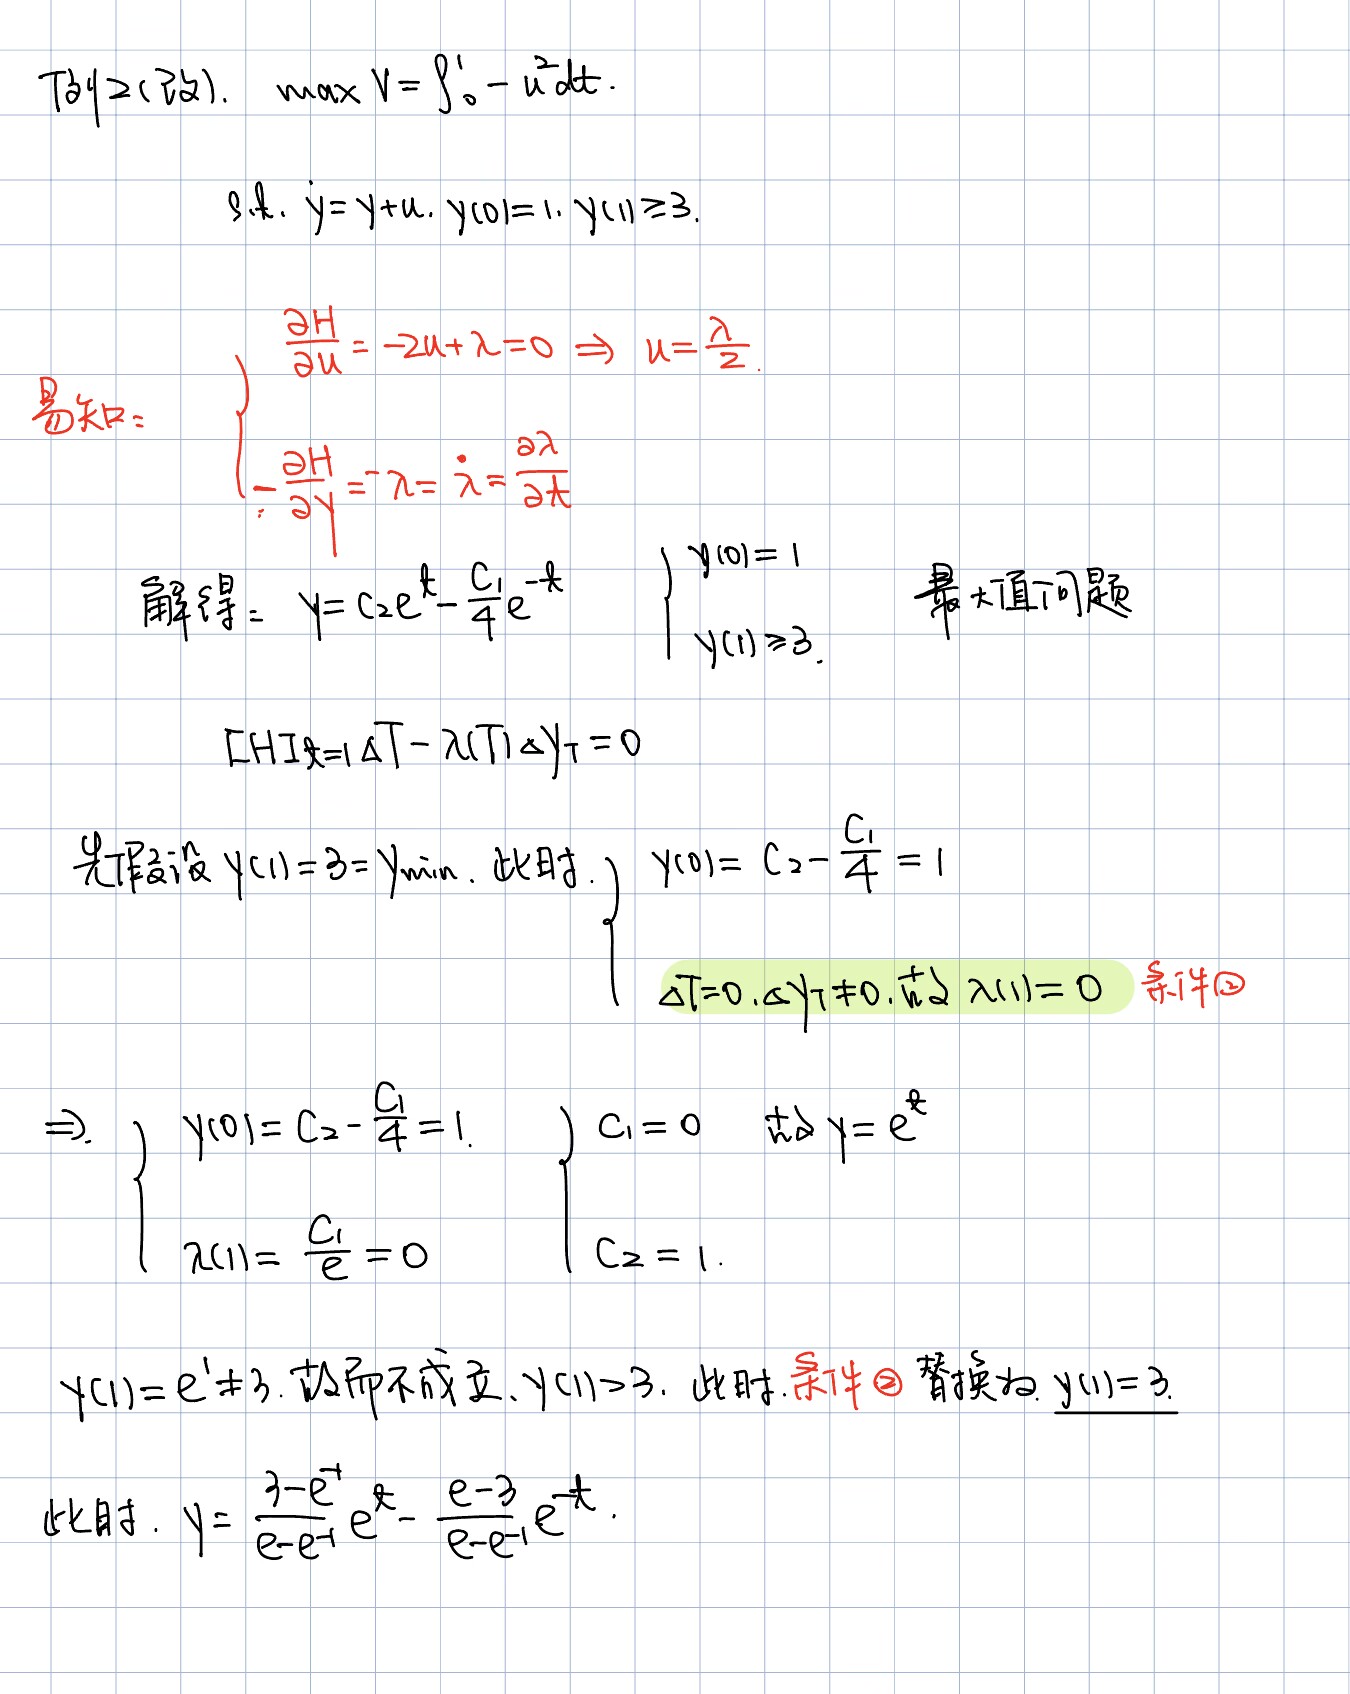 例2(改). max V = ∫₀¹ - u² dt.
s.t. ẏ = y+u. y(0)=1. y(1)≥3.
易知: { ∂H/∂u = -2u+λ=0 ⇒ u = λ/2.
-∂H/∂y = -λ = λ̇ = ∂λ/∂t
解得: y = C₂e^t - C₁/4 e^-t { y(0)=1 最大值问题
y(1)≥3.
[H]t=1 ΔT - λ(T)Δy_T = 0
先假设 y(1)=3=ymin. 此时. { y(0) = C₂ - C₁/4 = 1
ΔT=0. Δy_T≠0. 故 λ(1) = 0 条件②
⇒. { y(0) = C₂ - C₁/4 = 1. { C₁ = 0 故 y = e^t
λ(1) = C₁/e = 0 C₂ = 1.
y(1) = e¹ ≠ 3. 故而不成立. y(1)>3. 此时. 条件② 替换为 y(1)=3.
此时. y = (3-e^-1)/(e-e^-1) e^t - (e-3)/(e-e^-1) e^-t.